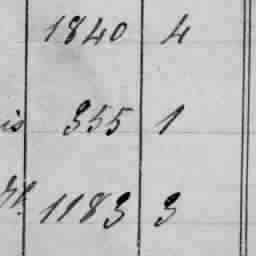 1840 4
is 355 1
1183 3